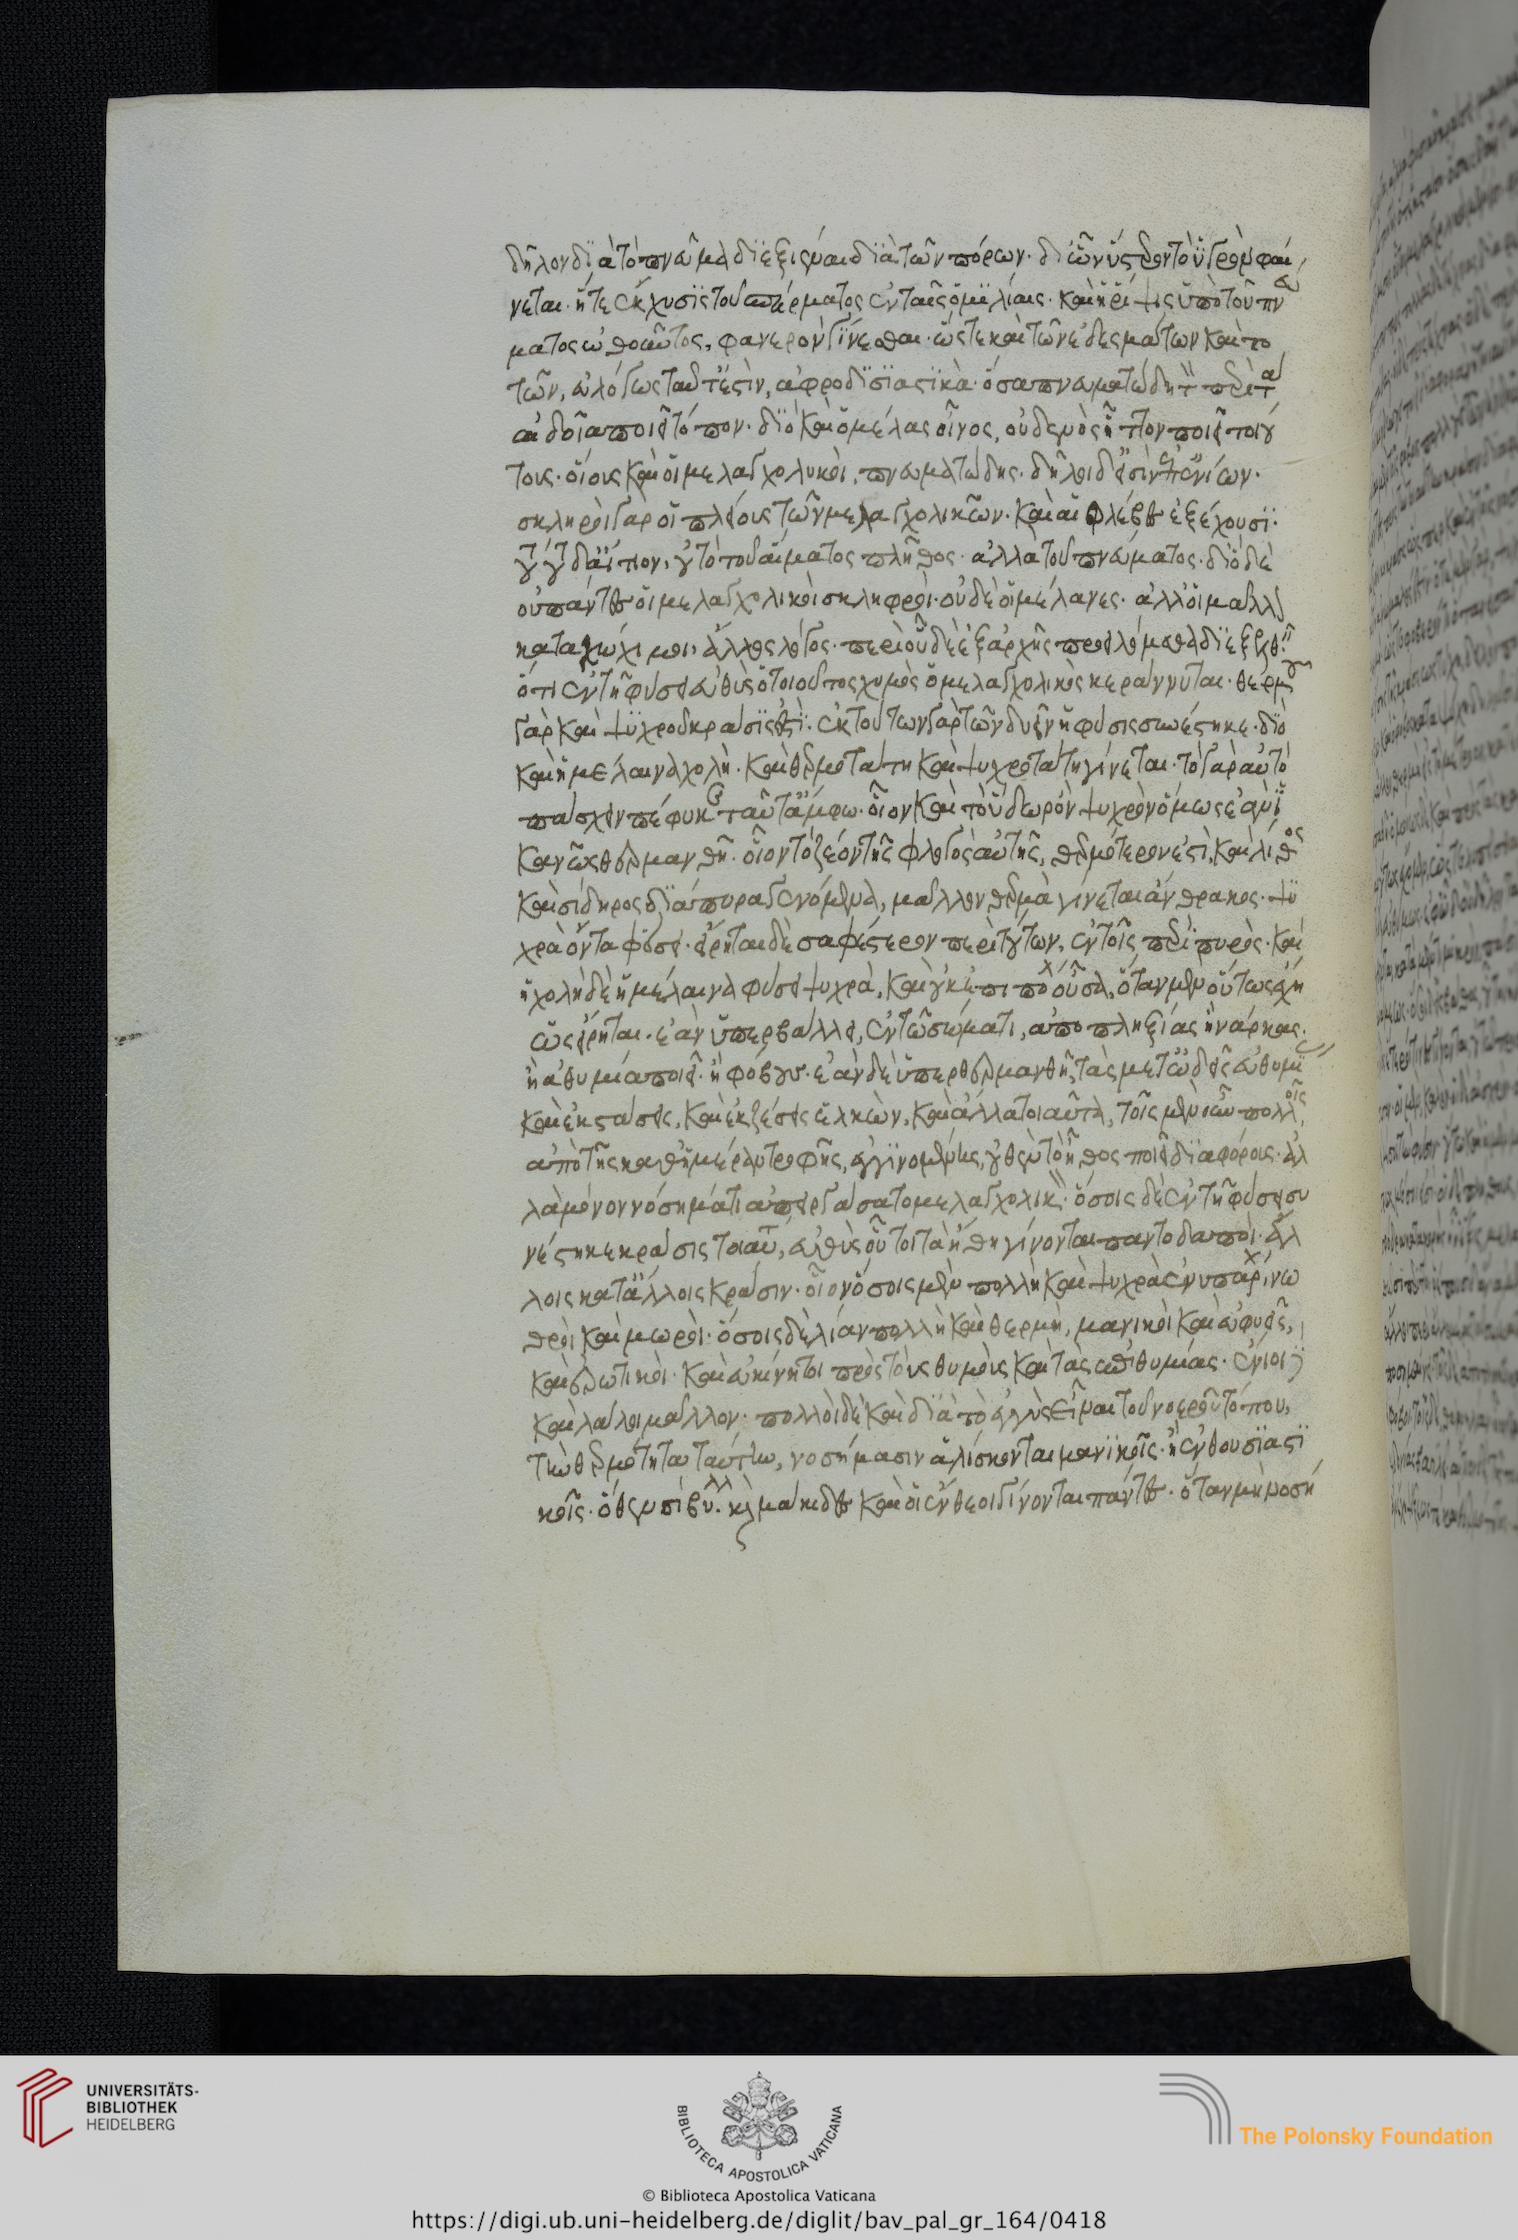 δῆλον διὰ τὸ πνεῦμα διεξιέναι διὰ τῶν πόρων· δι' ὧν ὕστερον τὸ ὑγρὸν φαί
νεται· ἥ τε ἔκχυσις τοῦ σπέρματος ἐν ταῖς ὁμιλίαις· καὶ ἡ ῥίψις ὑπὸ τοῦ πνεύ
ματος ὠθοῦντος, φανερὸν γίνεσθαι· ὥστε καὶ τῶν ἐδεσμάτων καὶ πο
τῶν, εὐλόγως ταῦτ' ἐστὶν, ἀφροδισιαστικὰ· ὅσα πνευματώδη τὸν περὶ τὰ
αἰδοῖα ποιεῖ τόπον· διὸ καὶ ὁ μέλας οἶνος, οὐδενὸς ἧττον ποιεῖ τοιού
τους· οἵους καὶ οἱ μελαγχολικοὶ, πνευματώδης· δῆλοι δ' εἰσὶν ἐπ' ἐνίων·
σκληροὶ γὰρ οἱ πλείους τῶν μελαγχολικῶν· καὶ αἱ φλέβες ἐξέχουσι·
τούτου δ' αἴτιον, οὐ τὸ τοῦ αἵματος πλῆθος· ἀλλὰ τοῦ πνεύματος· διὸ δὲ
οὐ πάντες οἱ μελαγχολικοὶ σκληφροὶ· οὐδὲ οἱ μέλανες· ἀλλ' οἱ μᾶλλον
κακόχυμοι, ἄλλος λόγος· περὶ οὗ δὲ ἐξ ἀρχῆς προειλόμεθα διεξελθεῖν
ὅτι ἐν τῇ φύσει εὐθὺς ὁ τοιοῦτος χυμὸς ὁ μελαγχολικὸς κεράννυται· θερμοῦ
γὰρ καὶ ψυχροῦ κρᾶσίς ἐστι· ἐκ τούτων γὰρ τῶν δυεῖν ἡ φύσις συνέστηκε· διὸ
καὶ ἡ μέλαινα χολὴ· καὶ θερμοτάτη καὶ ψυχροτάτη γίνεται· τὸ γὰρ αὐτὸ
πάσχειν πέφυκε ταῦτ' ἄμφω· οἷον καὶ τὸ ὕδωρ ὂν ψυχρὸν ὅμως ἐὰν ἱ
κανῶς θερμανθῇ· οἷον τὸ ζέον τῆς φλογὸς αὐτῆς, θερμότερον ἐστὶ, καὶ λίθος
καὶ σίδηρος διάπυρα γενόμενα, μᾶλλον θερμὰ γίνεται ἄνθρακος· ψυ
χρὰ ὄντα φύσει· εἴρηται δὲ σαφέστερον περὶ τούτων, ἐν τοῖς περὶ πυρὸς· καὶ
ἡ χολὴ δὲ ἡ μέλαινα φύσει ψυχρὰ, καὶ οὐκ ἐπιπολ οὖσα, ὅταν μὲν οὕτως ἔχῃ
ὡς εἴρηται· ἐὰν ὑπερβάλλει, ἐν τῷ σώματι, ἀποπληξίας ἢ νάρκας·
ἢ ἀθυμία ποιεῖ· ἢ φόβους· ἐὰν δὲ ὑπερθερμανθῇ, τὰς μετ' ᾠδῆς εὐθυμί
καὶ ἐκστάσεις, καὶ ἐκζέσεις ἑλκῶν, καὶ ἄλλα τοιαῦτα, τοῖς μὲν οὖν πολλοῖς
ἀπὸ τῆς καθ' ἡμέραν τροφῆς, ἐγγινομένης, οὐθὲν τὸ ἦθος ποιεῖ διαφόρους· ἀλ
λὰ μόνον νόσημά τι ἀπειργάσατο μελαγχολικὸν· ὅσοις δὲ ἐν τῇ φύσει συ
νέστηκε κρᾶσις τοιαύτη, εὐθὺς οὗτοι τὰ ἤθη γίνονται παντοδαποὶ· ἄλ
λοις κατ' ἄλλοις κρᾶσιν· οἷον ὅσοις μὲν πολλὴ καὶ ψυχρὰ ἐνυπάρχ, νω
θροὶ καὶ μωροὶ· ὅσοις δὲ λίαν πολλὴ καὶ θερμὴ, μανικοὶ καὶ εὐφυεῖς,
καὶ ἐρωτικοὶ· καὶ εὐκίνητοι πρὸς τοὺς θυμοὺς καὶ τὰς ἐπιθυμίας· ἔνιοι δὲ
καὶ λάλοι μᾶλλον· πολλοὶ δὲ καὶ διὰ τὸ ἐγγὺς εἶναι τοῦ νοεροῦ τόπου,
τὴν θερμότητα ταύτην, νοσήμασιν ἁλίσκονται μανικοῖς· ἢ ἐνθουσιαστι
κοῖς· ὅθεν σίβυλλ· καὶ μάκιδες καὶ οἱ ἔνθεοι γίνονται πάντες· ὅταν μὴ νοσή
UNIVERSITÄTS-
BIBLIOTHEK
HEIDELBERG
BIBLIOTECA APOSTOLICA VATICANA
The Polonsky Foundation
© Biblioteca Apostolica Vaticana
https://digi.ub.uni-heidelberg.de/diglit/bav_pal_gr_164/0418